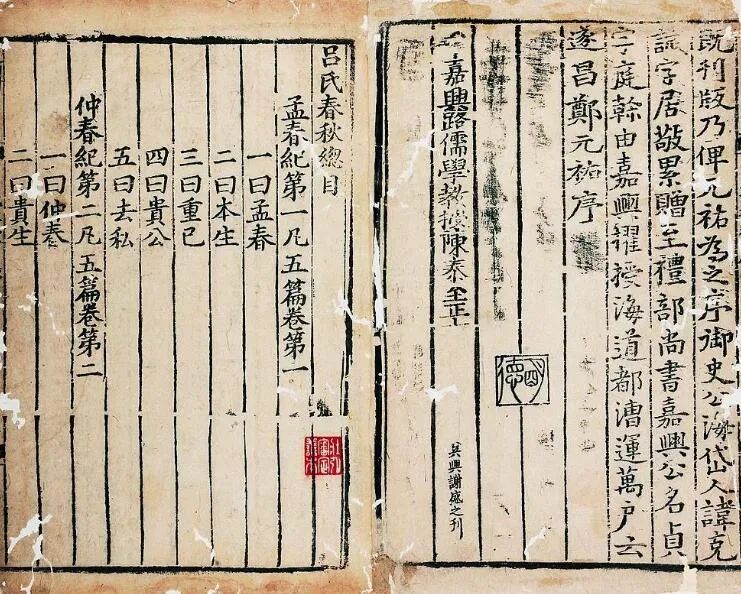 既刊版乃俾元祐為之序御史公海岱人諱克
字居敬累贈至禮部尚書嘉興公名貞
字庭榦由嘉興擢授海道都漕運萬户云
遂昌鄭元祐序
嘉興路儒學教授陳泰至正
吳興謝盛之刊
呂氏春秋總目
孟春紀第一凡五篇卷第一
一曰孟春
二曰本生
三曰重已
四曰貴公
五曰去私
仲春紀第二凡五篇卷第二
一曰仲春
二曰貴生